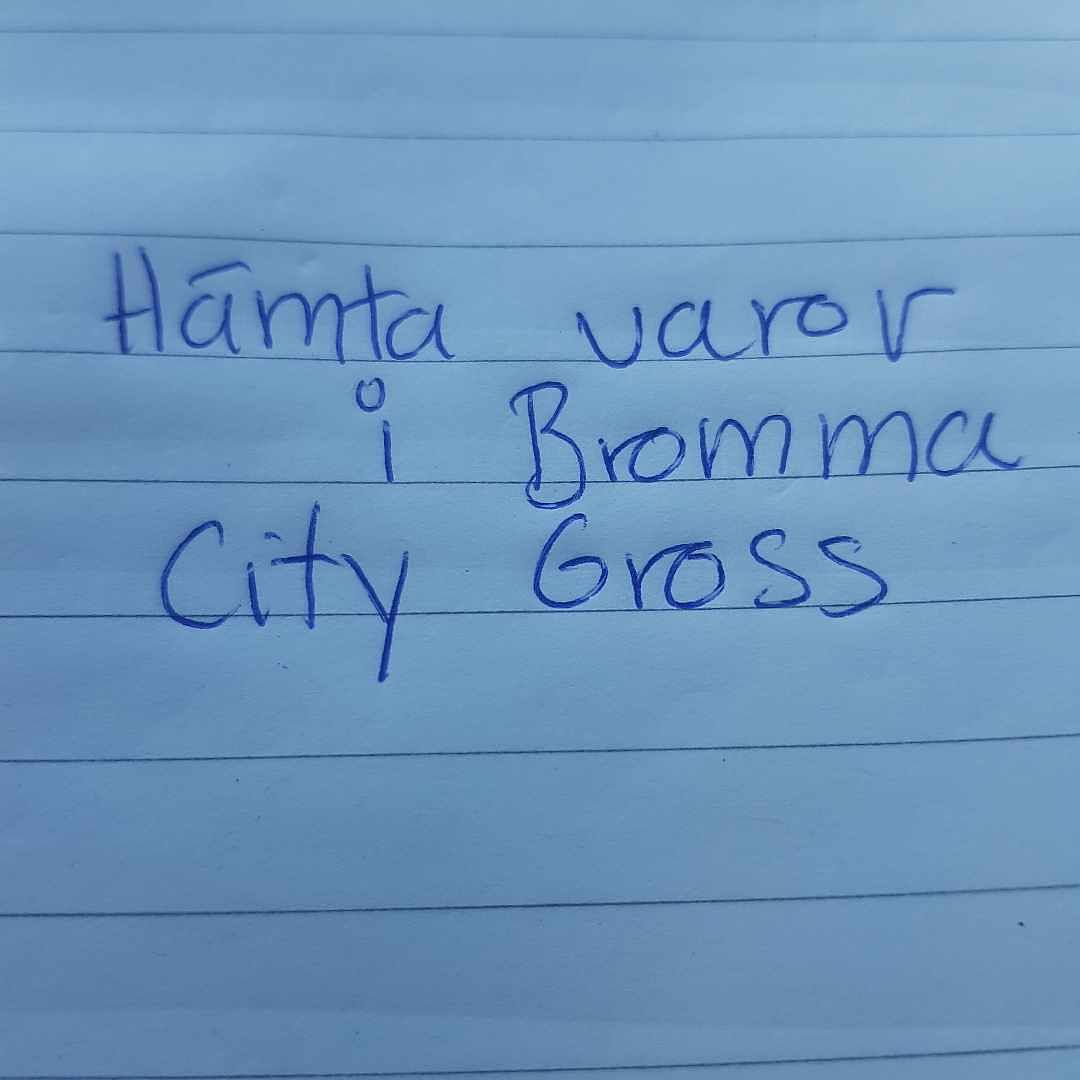 Hämta varor
i Bromma
City Gross